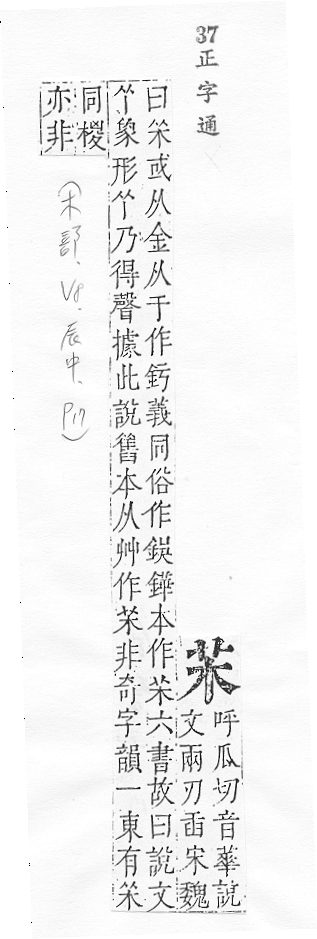 37正字通
茉
呼瓜切音華說
文兩刃臿宋魏
曰茉或从金从于作釫義同俗作鋘鏵本作茉六書故曰說文
象形乃得聲據此說舊本从艸作茉非奇字韻一東有茉
同椶
亦非
(木部、V8、辰中、P17)